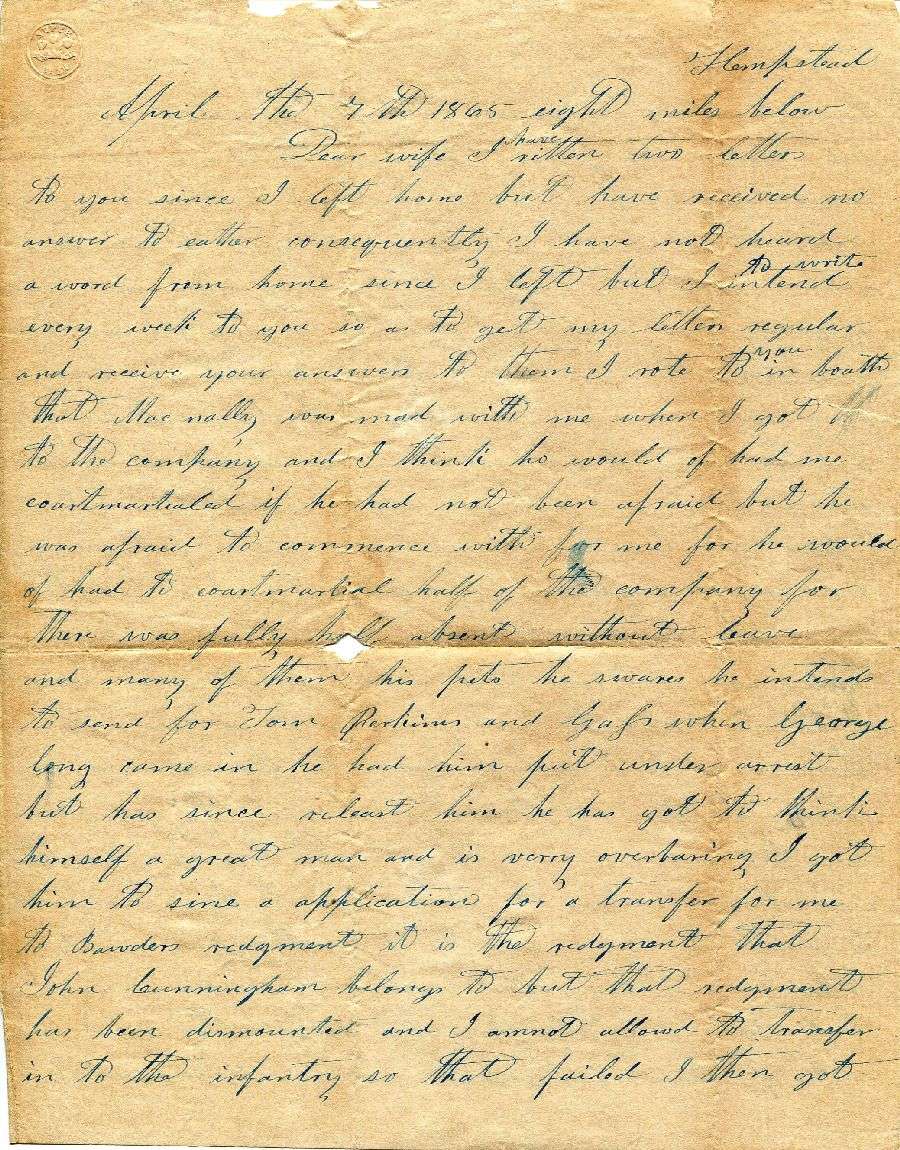 Hempstead
April the 7th 1865 eight miles below
Dear wife I have ritten two letters
to you since I left home but have received no
answer to eather consequently I have not heard
a word from home since I left but I intend to write
every week to you so as to get my letters regular
and receive your answers to them I rote to you in boath
that Mac nally was mad with me when I got
to the company and I think he would of had me
coartmartialed if he had not been afraid but he
was afraid to commence with for me for he would
of had to coartmartial half of the company for
there was fully half absent without leave
and many of them his pets he swares he intends
to send for Tom Perkins and when George
long came in he had him put under arrest
but has since releast him he has got to think
himself a great man and is verry overbaring I got
him to sine a application for a transfer for me
to redgment it is the redgment that
John Cunningham belongs to but that redgment
has been dismounted and I amnot allowd to transfer
in to the infantry so that failed I then got